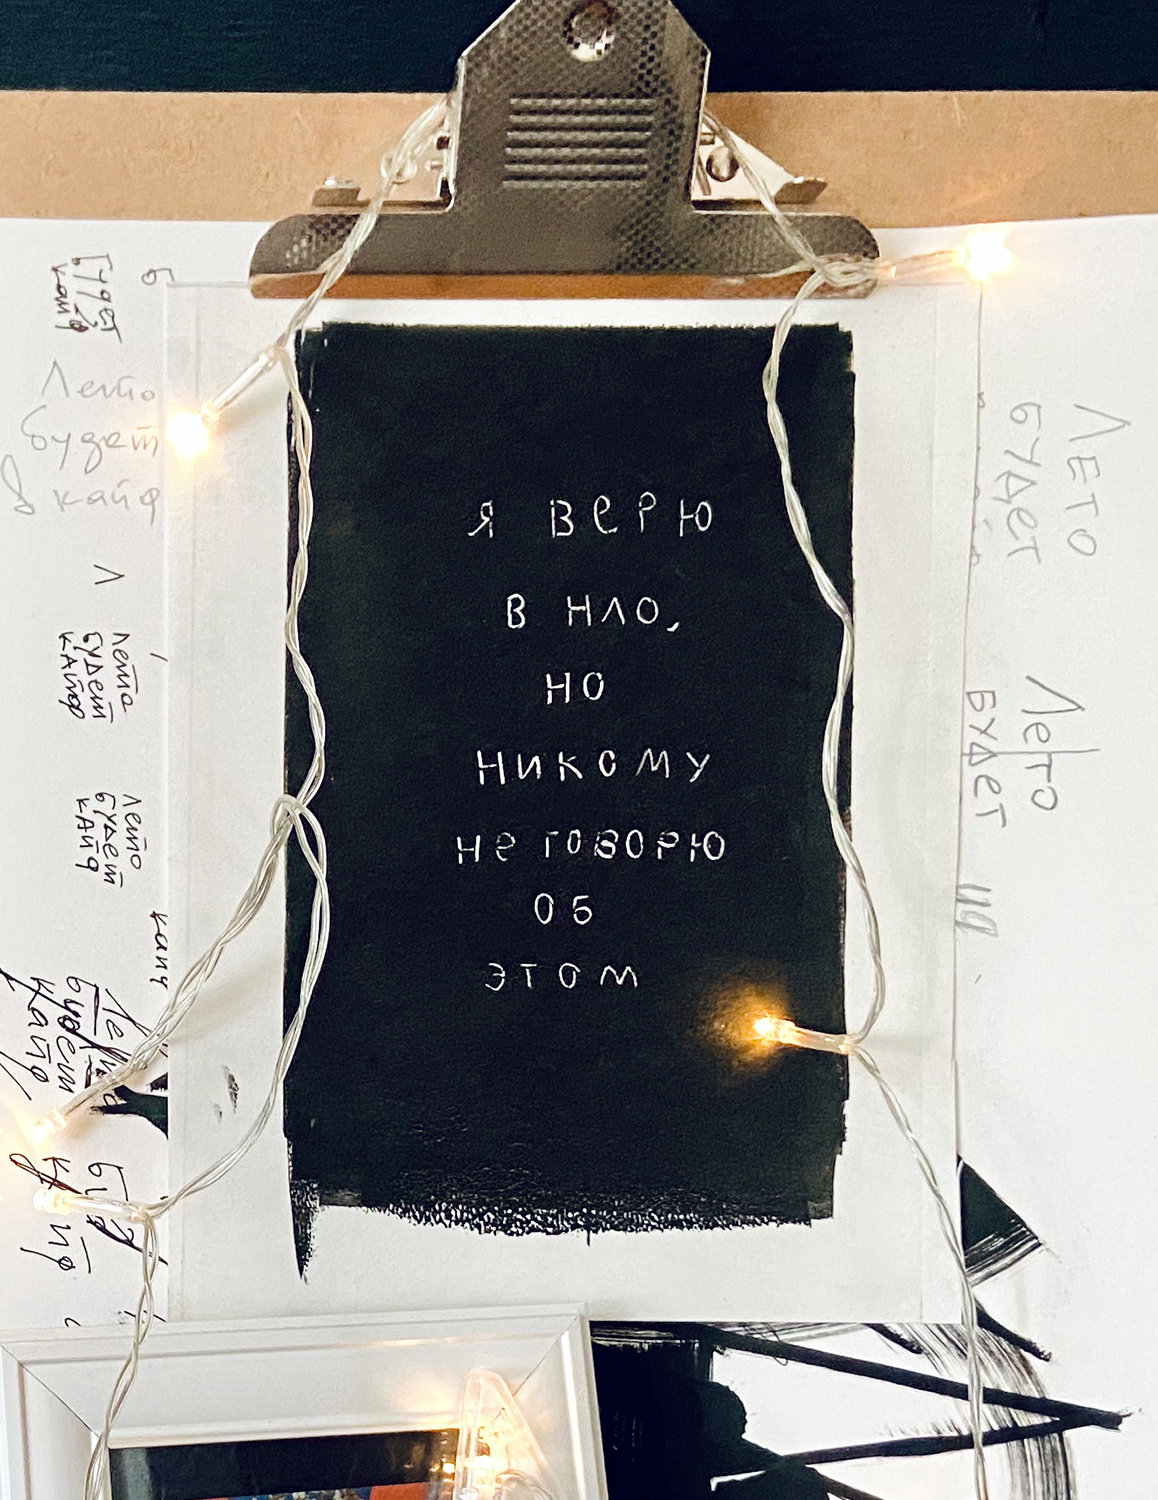 я верю
в нло,
но
никому
не говорю
об
этом
будет
кайф
б
Лето
будет
кайф
Л
лето
будет
кайф
лето
будет
кайф
кайф
будет
кайф
Лето
будет
Лето
будет